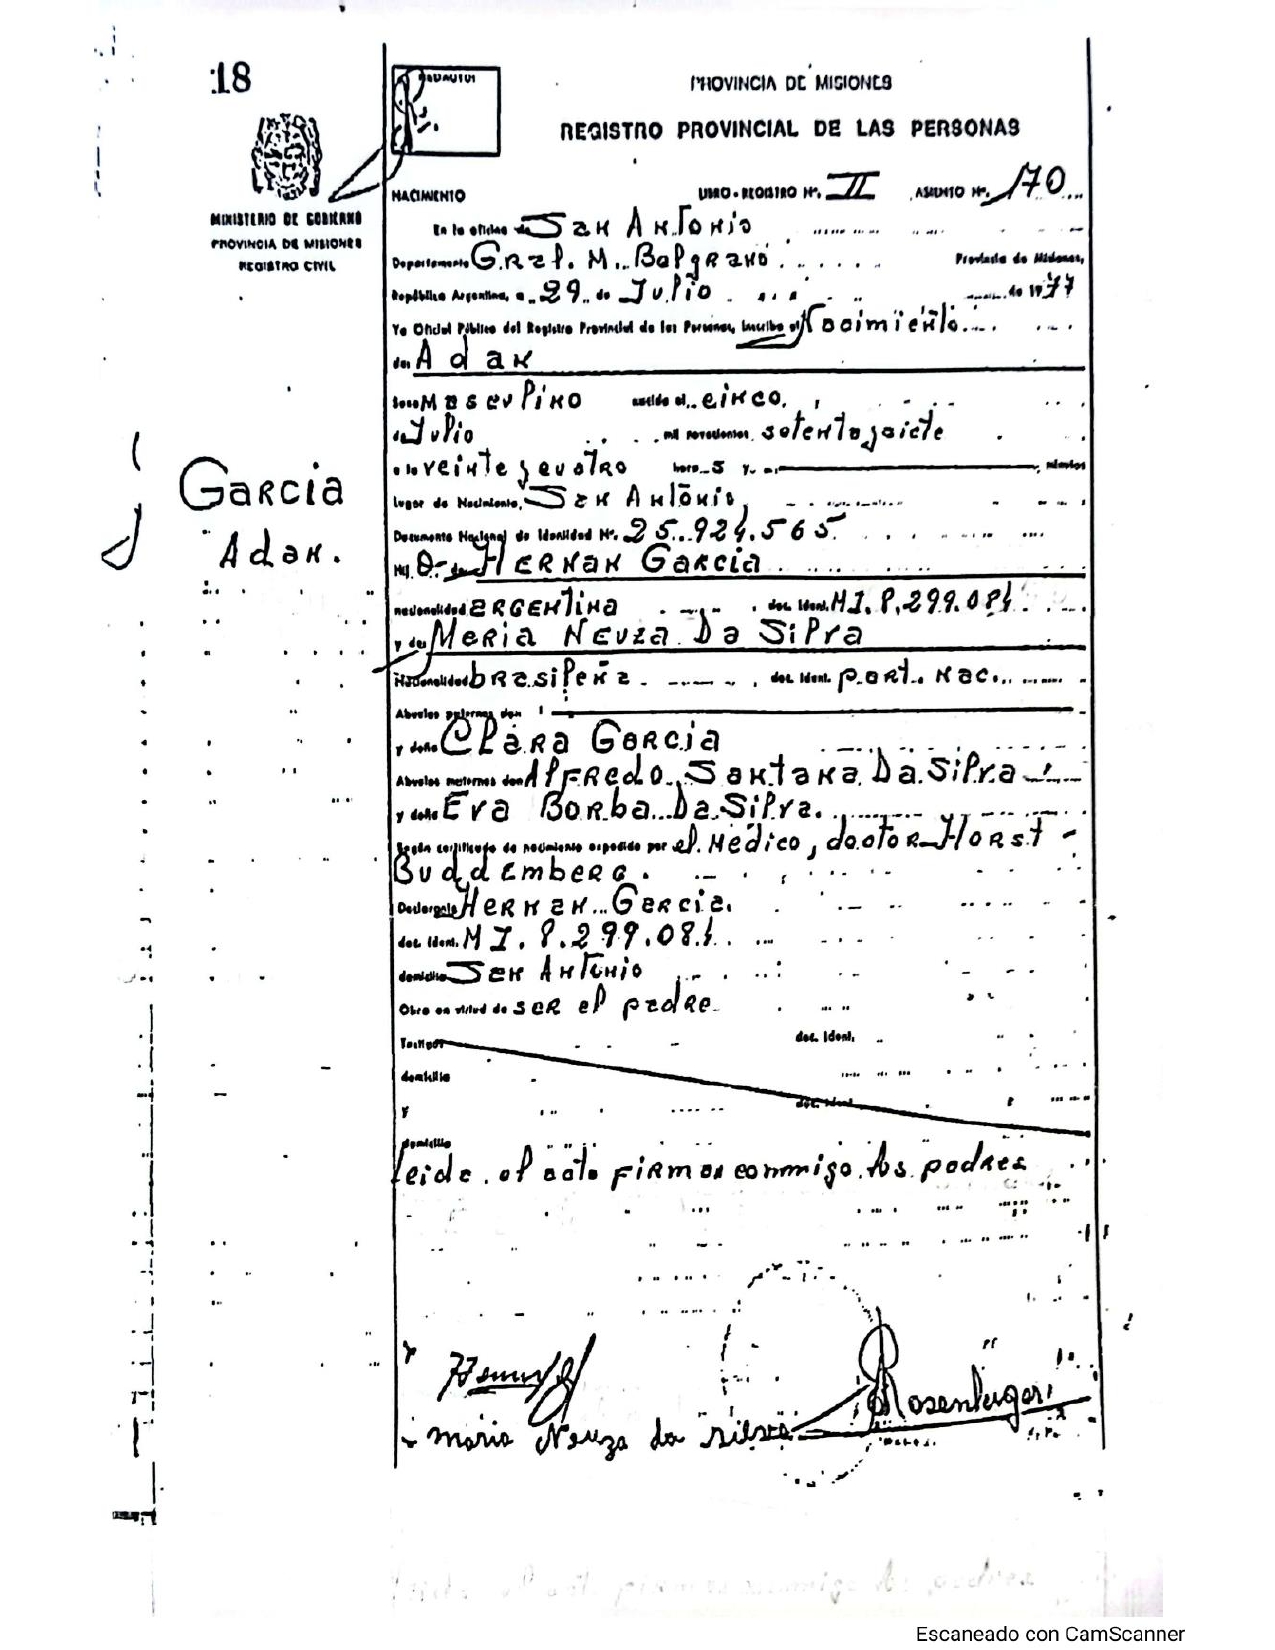 18
PROVINCIA DE MISIONES
REGISTRO PROVINCIAL DE LAS PERSONAS
MINISTERIO DE GOBIERNO
PROVINCIA DE MISIONES
REGISTRO CIVIL
NACIMIENTO LIBRO - REGISTRO Nº. II ASUNTO Nº. 170
En la oficina de San Antonio
Departamento Gral. M. Belgrano Provincia de Misiones,
República Argentina, a 29 de Julio de 1977
Yo Oficial Público del Registro Provincial de las Personas, inscribo el Nacimiento
de: Adan
Sexo Masculino nacido el cinco
de Julio mil novecientos setenta y siete
a las veinte y cuatro horas y minutos
Lugar de Nacimiento, San Antonio
Garcia
Adan.
Documento Nacional de Identidad Nº. 25.924.565
Hijo de Hernan Garcia
nacionalidad argentina doc. Ident. M.I. 8.299.084
y de: Maria Neuza Da Silva
Nacionalidad brasileña doc. Ident. port. nac.
Abuelos paternos don
y doña Clara Garcia
Abuelos maternos don Alfredo Santana Da Silva
y doña Eva Borba Da Silva.
Según certificado de nacimiento expedido por el Médico, doctor Horst
Buddemberg.
Declarante Hernan Garcia.
doc. Ident. M I. 8.299.084
domicilio San Antonio
Obra en virtud de ser el padre
Testigos doc. Ident.
domicilio
y doc. Ident.
domicilio
leida el acta firman conmigo los padres
Maria Neuza da Silva
Escaneado con CamScanner